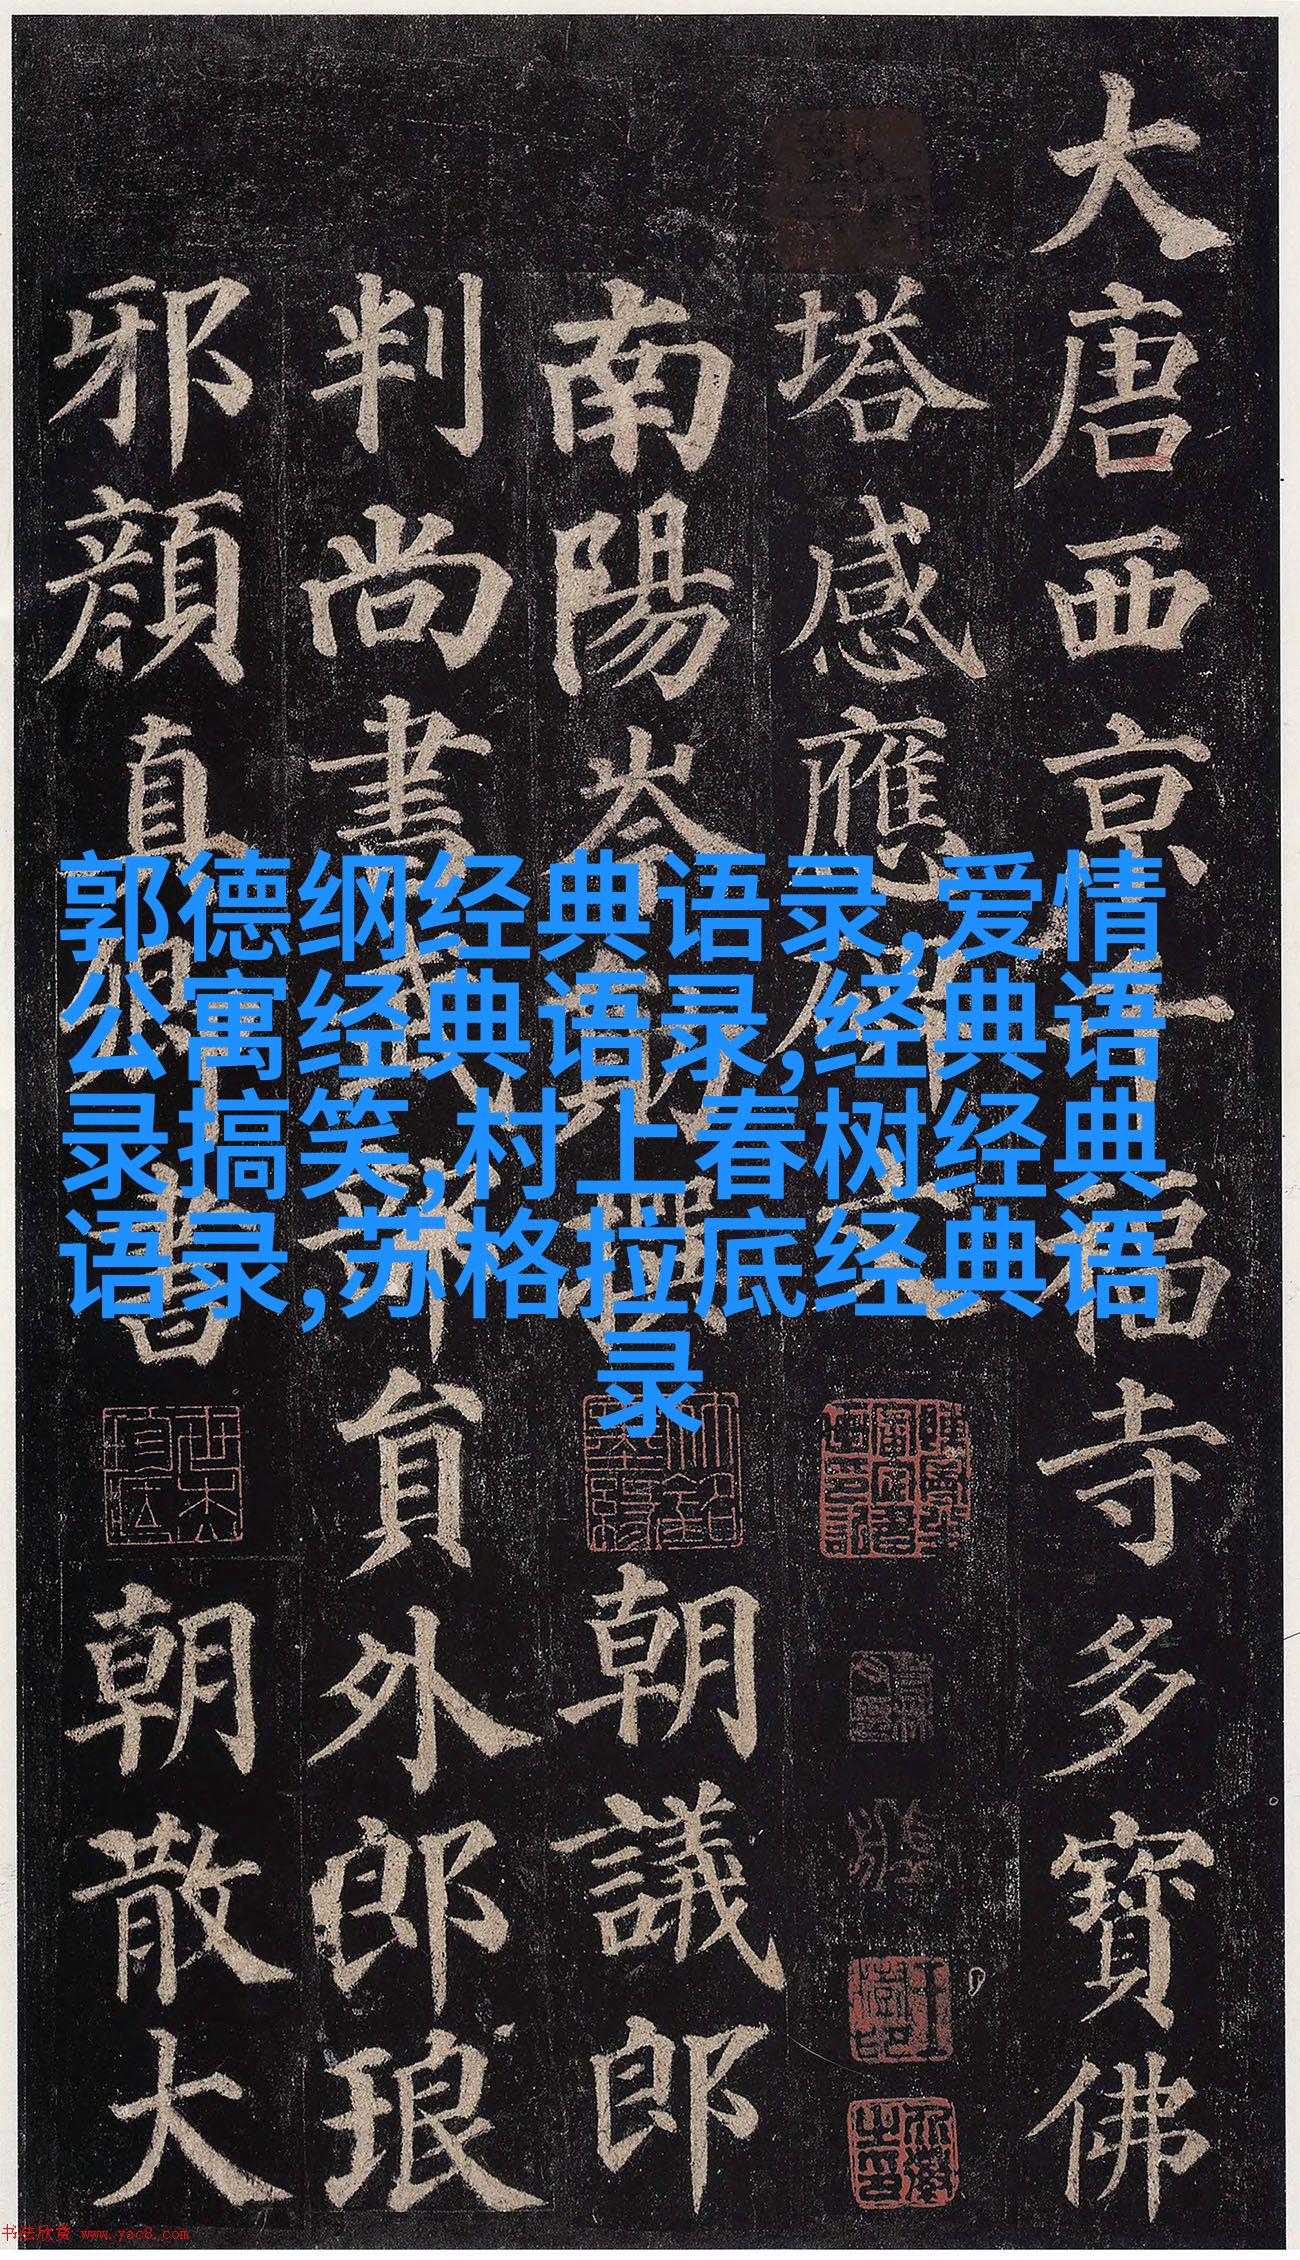 大唐西京千福寺多寶佛
塔感應碑文
南陽岑勛撰朝議郎
判尚書武部貟外郎琅
邪顏真卿書朝散大
郭德纲经典语录,爱情
公寓经典语录,经典语
录搞笑,村上春树经典
语录,苏格拉底经典语
录
书法欣赏 www.yac8.com